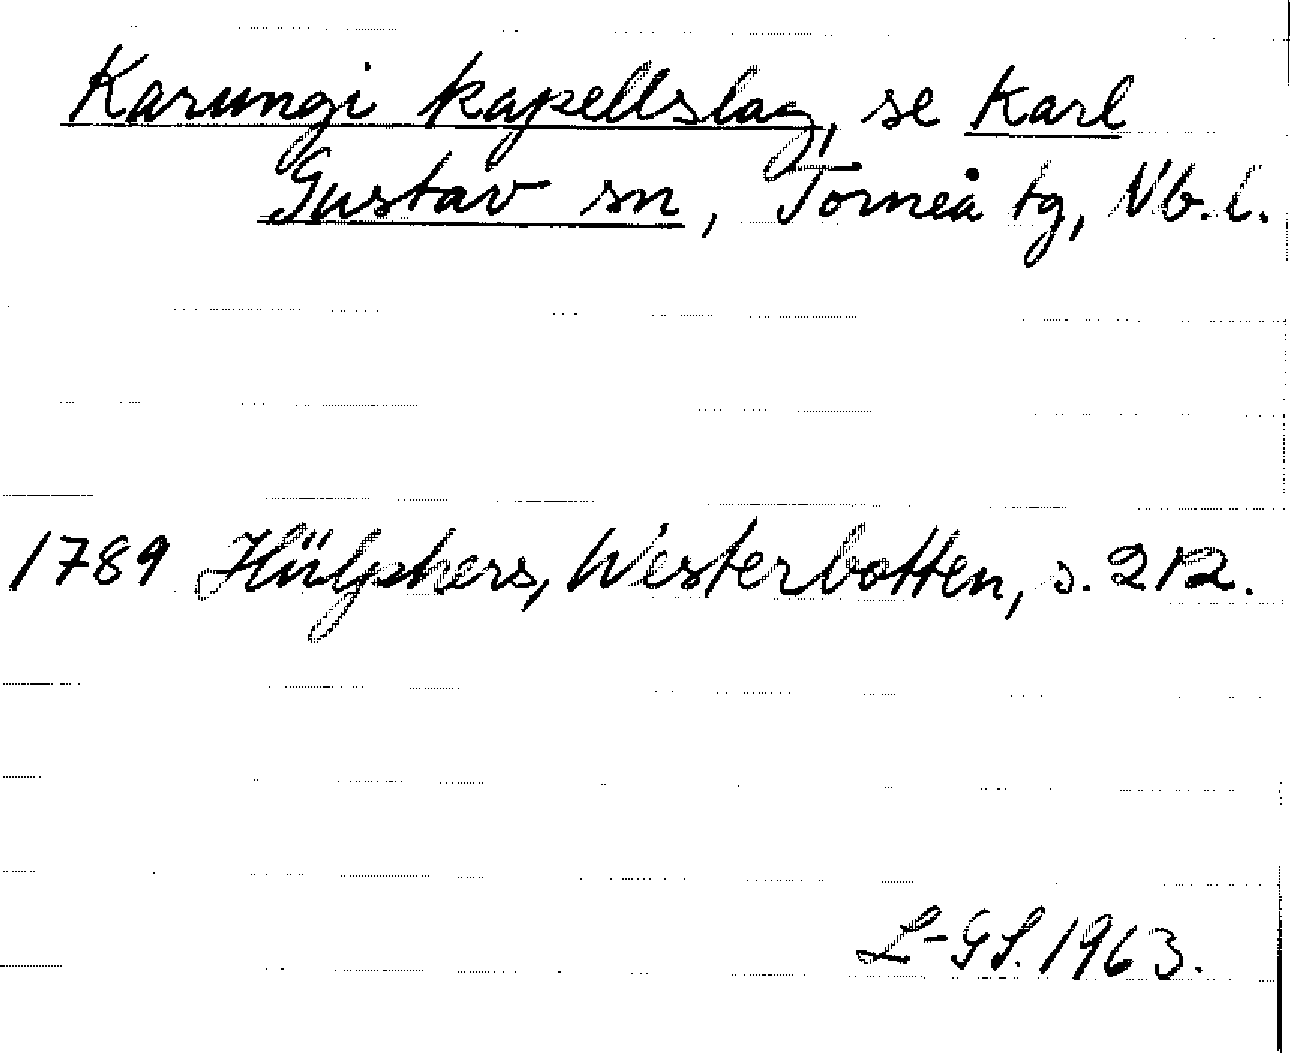 Karungi kapellslag, se Karl
Gustav sn, Torneå tg, Nb. l.
1789 Hülphers, Westerbotten, s. 212.
L-GS. 1963.